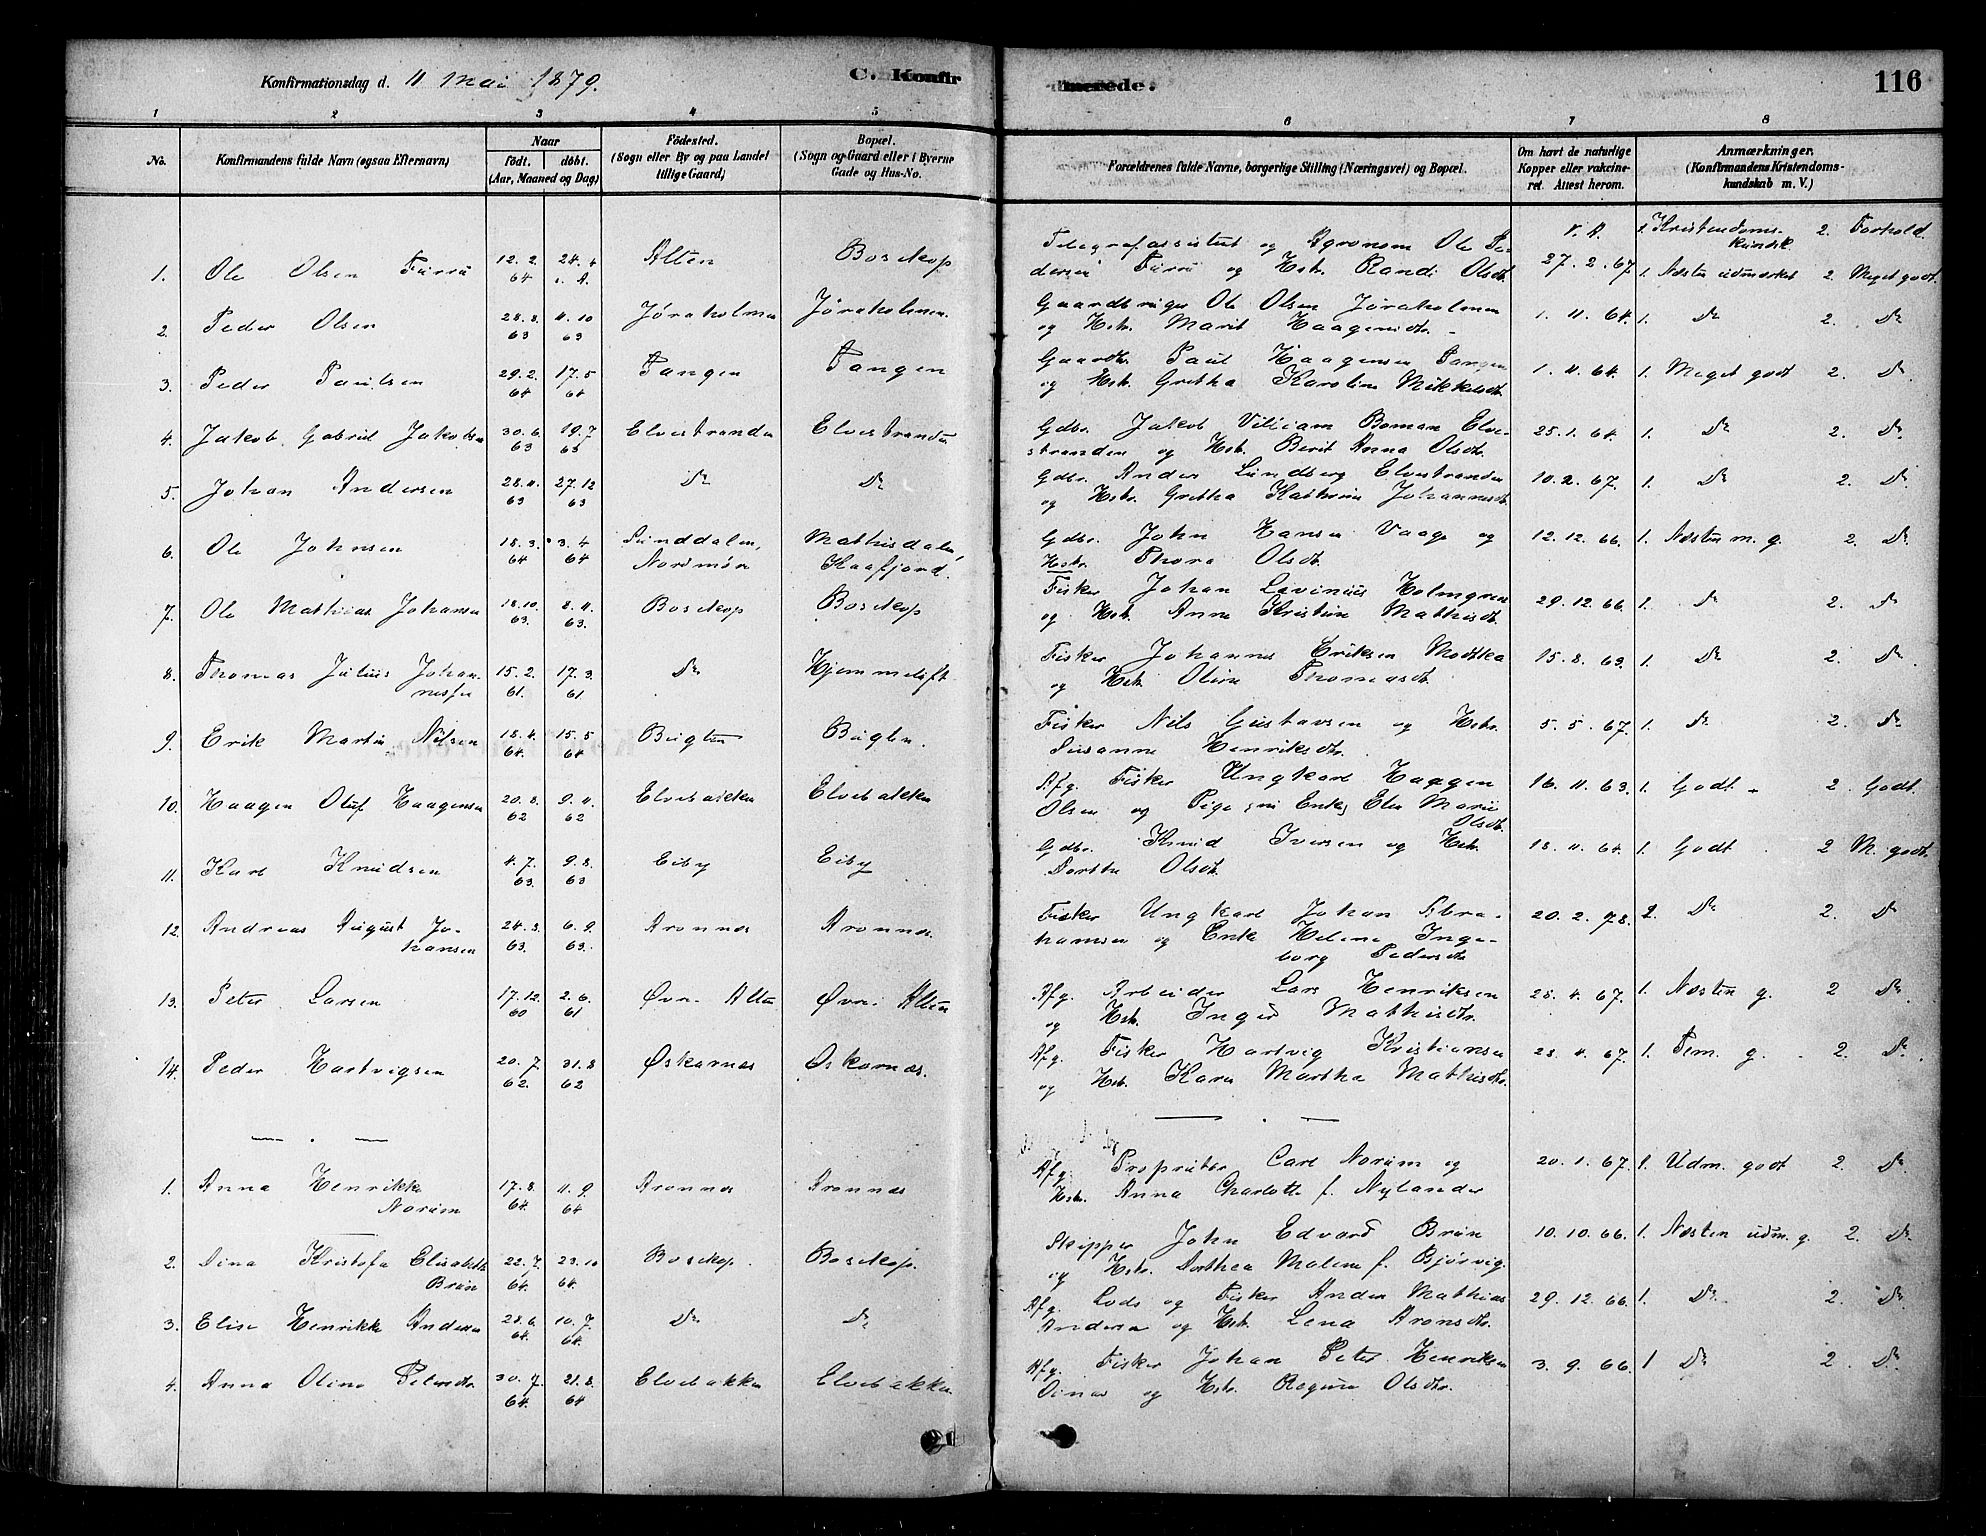 Konfirmationsdag d. 11 Mai 1879.
C. Konfirmerede.
116
1 2 3 4 5 6 7 8
No.
Konfirmandens fulde Navn (ogsaa Efternavn)
Naar
födt. döbt.
(Aar, Maaned og Dag)
Födested.
(Sogn eller By og paa Landet
tillige Gaard)
Bopæl.
(Sogn og Gaard eller i Byerne
Gade og Hus-No.
Forældrenes fulde Navne, borgerlige Stilling (Næringsvei) og Bopæl.
Om havt de naturlige
Kopper eller vakcine-
ret. Attest herom.
Anmærkninger.
(Konfirmandens Kristendoms-
kundskab m. V.)
V. A. 1. Kristendoms- kundsk. 2. Forhold.
1. Ole Olsen Furru 12.2. 64 24.4 i. A. Alten Bosekop
Telegrafassistent og Agronom Ole Pe-
dersen Furru og Hstr. Randi Olsdtr. 27.2.67. 1. Næsten udmærket 2. Meget godt.
2. Peder Olsen 28.8. 63 4.10 63 Jøraholmen Jøraholmen
Gaardbruger Ole Olsen Jøraholmen
og Hstr. Marit Haagensdtr. 1.11.64. 1. Do 2. Do
3. Peder Paulsen 29.2. 64 17.5 64 Tangen Tangen
Gaardbr. Paul Haagensen Tangen
og Hstr. Gretha Karoline Mikkelsdtr. 1.11.64. 1. Meget godt 2. Do.
4. Jakob Gabriel Jakobsen 30.6. 63 19.7 63 Elvestranden Elvestranden
Gdbr. Jakob Villiam Boman Elve-
stranden og Hstr. Berit Anna Olsdtr. 25.1.64. 1. Do 2. Do.
5. Johan Andersen 28.11. 63 27.12 63 Do Do
Gdbr. Anders Lundberg Elvestranden
og Hstr. Gretha Kathrine Johannesdtr. 10.2.67. 1. Do 2. Do.
6. Ole Johnsen 18.3. 64 3.4 64 Sunddalen, Nordmøre Mathisdalen, Kaafjord.
Gdbr. John Hansen Vaage og
Hstr. Thora Olsdtr. 12.12.66. 1. Næsten m. g. 2. Do.
7. Ole Mathias Johansen 18.10. 63. 8.11. 63. Bosekop Bosekop
Fisker Johan Lavinius Holmgren
og Hstr. Anne Kristine Mathisdtr. 29.12.66. 1. Do 2. Do.
8. Thomas Julius Johan-
nesen 15.2. 61. 17.3. 61 Do Hjemmeluft
Fisker Johannes Eriksen Modska
og Hstr. Oline Thomasdtr. 15.8.63. 1. Do 2. Do.
9. Erik Martin Nilsen 18.4. 64. 15.5 64 Bugten Bugten.
Fisker Nils Gustavsen og Hstr.
Susanne Henriksdtr. 5.5.67. 1. Do 2. Do
10. Haagen Oluf Haagensen 20.8. 62 9.11. 62 Elvebakken Elvebakken
Afg. Fisker Ungkarl Haagen
Olsen og Pige, nu Enke, Elen Marie
Olsdtr. 16.11.63. 1. Godt. 2. Godt.
11. Karl Knudsen 4.7. 63. 9.8. 63 Eiby Eiby
Gdbr. Knud Iversen og Hstr.
Dorthe Olsdtr. 18.11.64. 1. Godt. 2 M. godt.
12. Andreas August Jo-
hansen 24.3. 63. 6.9. 63. Aronnes Aronnes.
Fisker Ungkarl Johan Abra-
hamsen og Enke Helene Inge-
borg Pedersdtr. 20.2.78. 2. Do 2. Do
13. Peter Larsen 17.12. 60 2.6. 61 Øvre Alten Øvre Alten
Afg. Arbeider Lars Henriksen
og Hstr. Inger Mathisdtr. 28.4.67. 1. Næsten g. 2 Do.
14. Peder Hartvigsen 20.7 62. 31.8 62 Øskarnes Øskarnes.
Afg. Fisker Hartvig Kristiansen
og Hstr. Karen Martha Mathisdtr. 28.4.67. 1. Tem. g. 2. Do.
1. Anna Henrikke
Norum 17.8. 64. 11.9. 64 Aronnes Aronnes
Afg. Proprietær Carl Norum og
Hstr. Anna Charlotte f. Nylander 20.1.67. 1. Udm. godt 2. Do.
2. Dina Kristofa Elisabeth
Brun 22.7. 64. 23.10 64. Bosekop. Bosekop.
Skipper John Edvard Brun
og Hstr. Dorthea Malene f. Bjørvig. 10.10.66. 1. Næsten udm. g. 2. Do
3. Elise Henrikke Andersen 28.6. 64. 10.7. 64. Do Do
Afg. Lods og Fisker Anders Mathias
Andersen og Hstr. Lena Aronsdtr. 29.12.66. 1. Do. 2. Do.
4. Anna Olina Petersdtr. 30.7. 64. 21.8. 64 Elvebakken Elvebakken
Afg. Fisker Johan Peter Henriksen
Oinas og Hstr. Regine Olsdtr. 3.9.66. 1 Do 2. Do.